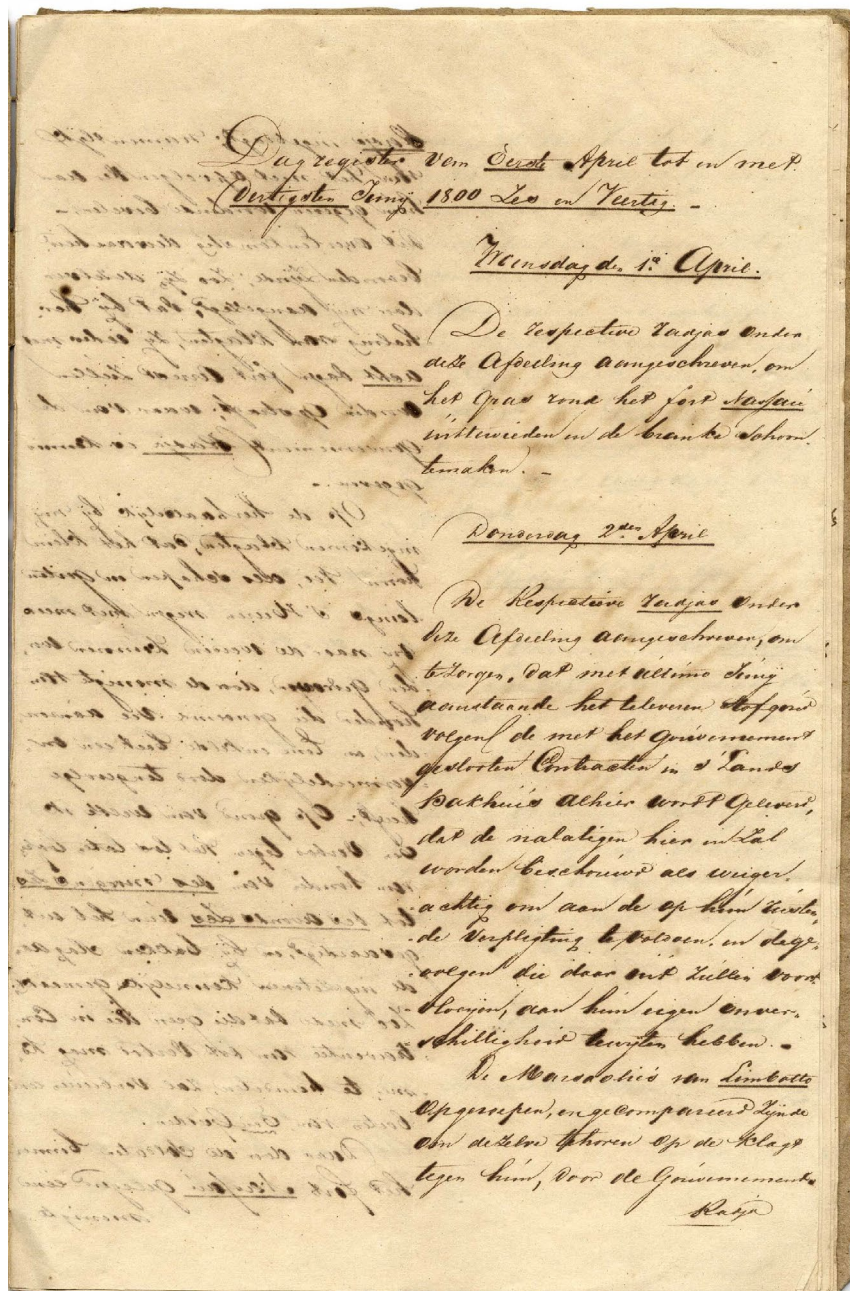 Dagregister vom Eerste April tot en met
dertigsten Junij 1800 Zes en Veertig. -
Woensdag den 1e April.
De respective radjas onder
deze Afdeeling aangeschreven, om
het gras rond het fort Nassau
uittewieden en de schoon
temaken. -
Donderdag 2den April
De Respective radjas onder
deze Afdeeling aangeschreven, om
te zorgen, dat met ultimo Junij
aanstaande het televeren stofgoud
volgens de met het Gouvernement
geslooten Contracten in s' Lands
pakhuis alhier wordt geleverd,
dat de nalatigen hier in zal
worden beschouwd als weiger-
achtig om aan de op hun rusten-
de verpligting te voldoen, en de ge-
volgen die daar uit zullen voort
vloeijen, aan hun eigen onver-
schilligheid tewyten hebben. -
De Marsaolies van Limbotto
opgeroepen, en gecompareerd zijnde
om dezelve tehoren op de klagt
tegen hun, door de Gouvernements
Radja